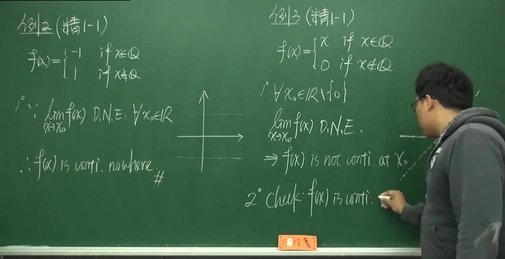 例2 (精1-1)
f(x)={ -1 if x∈Q
1 if x∉Q
1° ∵ lim f(x) D.N.E. ∀x₀∈R
x→x₀
∴ f(x) is conti. nowhere #
例3 (精1-1)
f(x)={ x if x∈Q
0 if x∉Q
1° ∀x₀∈R\{0}
lim f(x) D.N.E.
x→x₀
⇒ f(x) is not conti. at x₀
2° check: f(x) is conti.